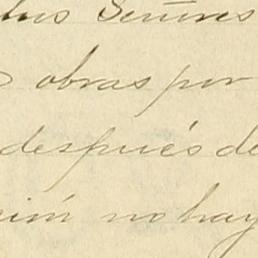 Señores
obras por
después de
no hay